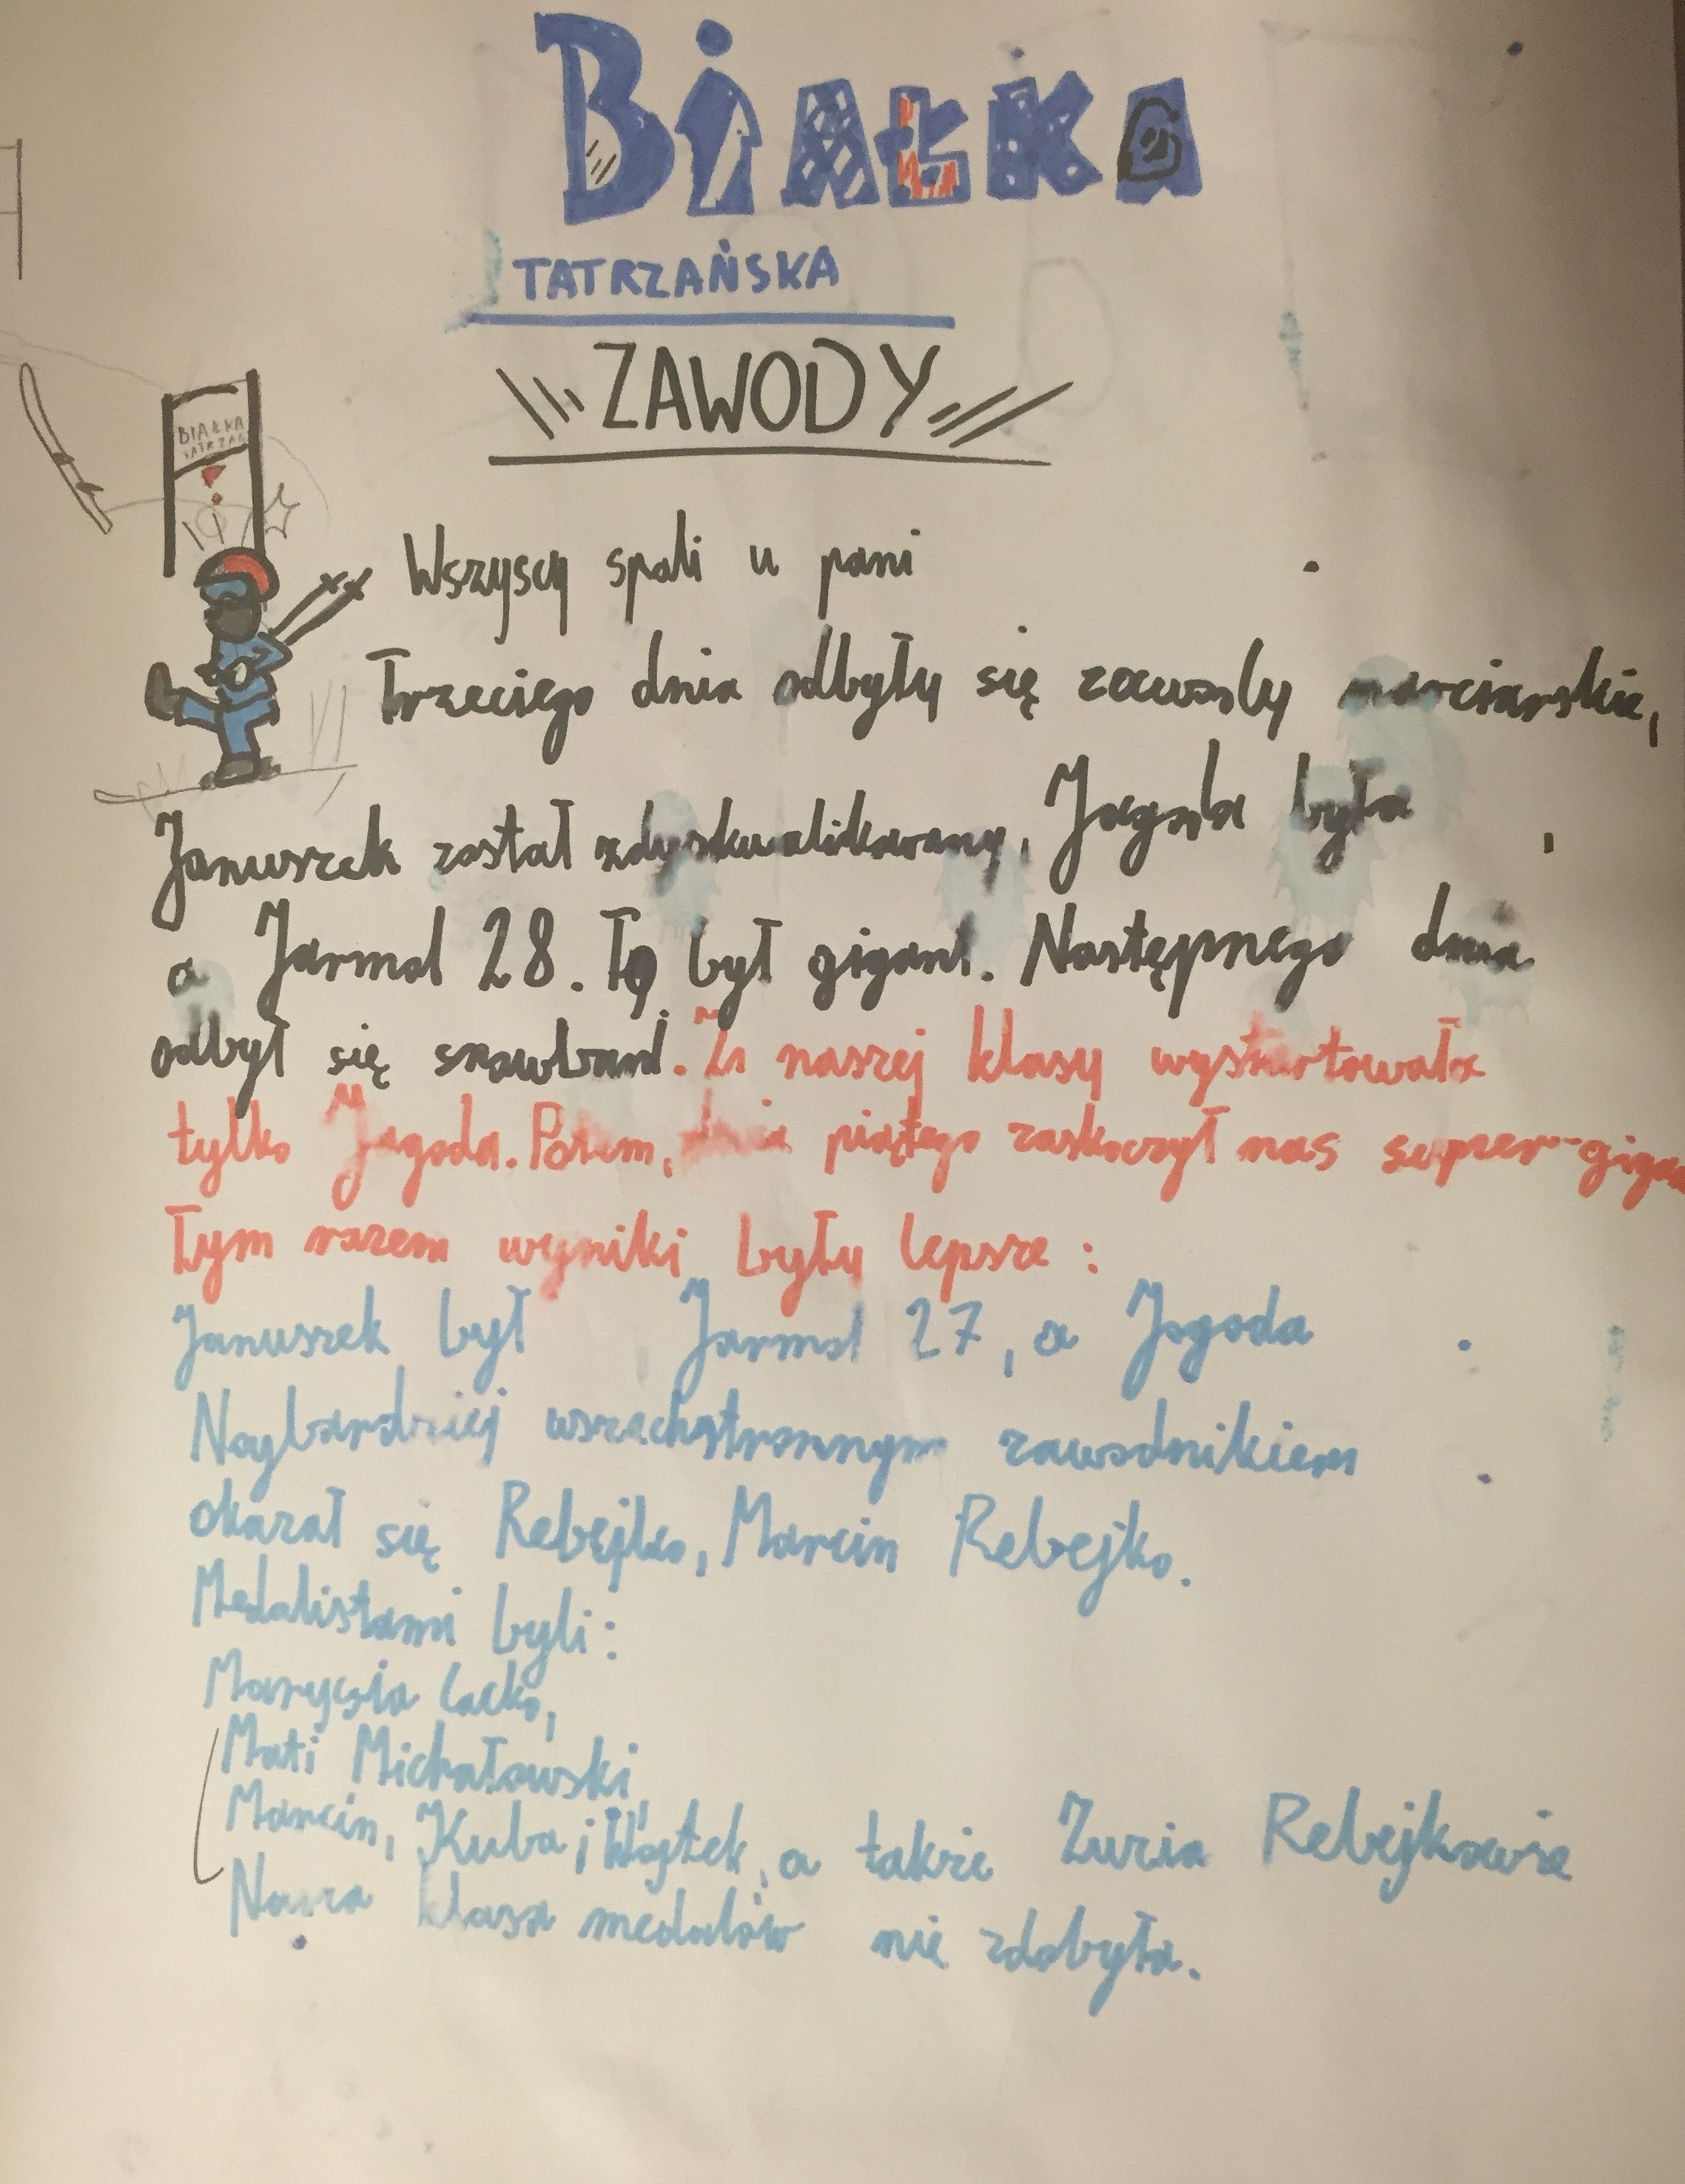 BIAŁKA
TATRZAŃSKA
ZAWODY
BIAŁKA
TATRZAŃ
Wszyscy spali u pani .
Trzeciego dnia odbyły się zawody narciarskie,
Januszek został zdyskwalikowany, Jagoda była ,
a Jarmol 28. To był gigant. Następnego dnia
odbył się snowboard. Z naszej klasy wystartowała
tylko Jagoda. Potem, dnia piątego zaskoczył nas super-gigan
Tym razem wyniki były lepsze:
Januszek był Jarmol 27, a Jagoda .
Najbardziej wszechstronnym zawodnikiem
okazał się Rebejko, Marcin Rebejko.
Medalistami byli:
Marysia Lacko,
Mati Michałowski,
Marcin, Kuba i Wojtek, a także Zuzia Rebejkowie
Nasza klasa medalów nie zdobyła.